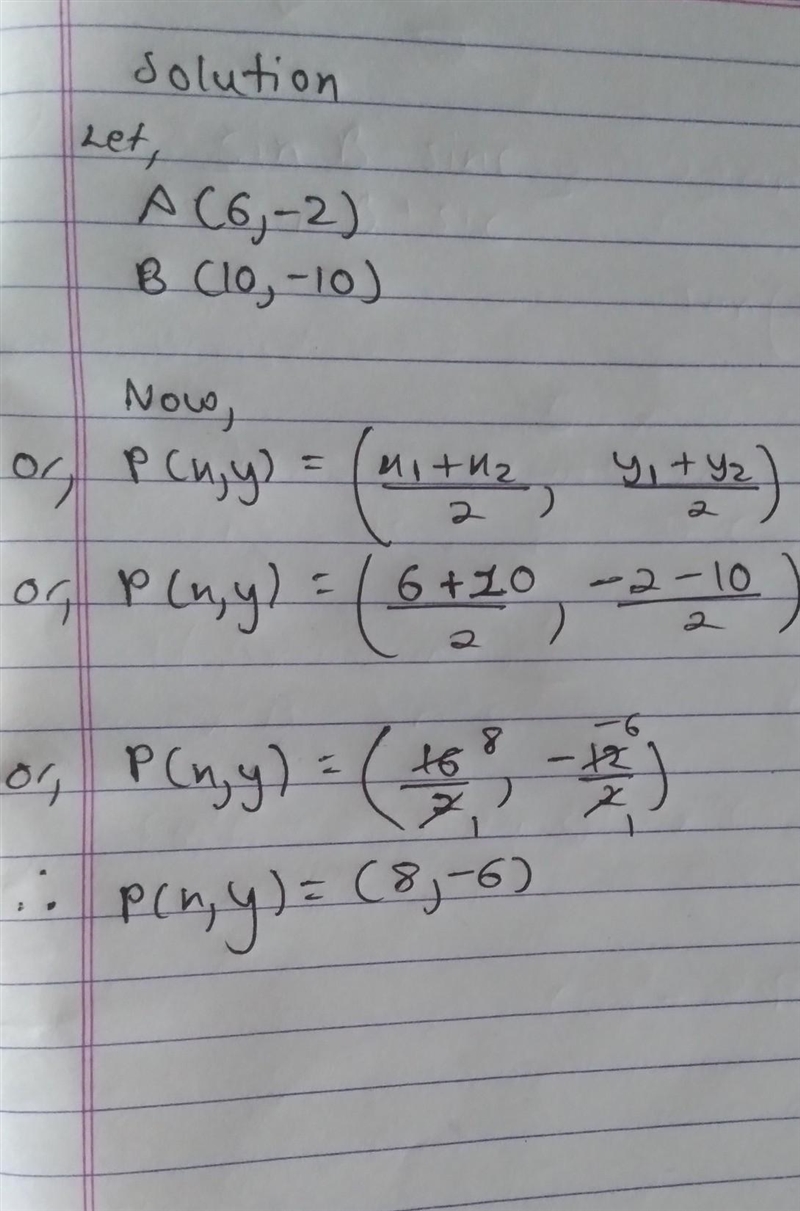 Solution
Let,
A (6,-2)
B (10,-10)
Now,
or, P(x,y) = (x1+x2/2, y1+y2/2)
or, P(x,y) = (6+10/2, -2-10/2)
or, P(x,y) = (16/2 8/1, -12/2 -6/1)
∴ P(x,y) = (8,-6)